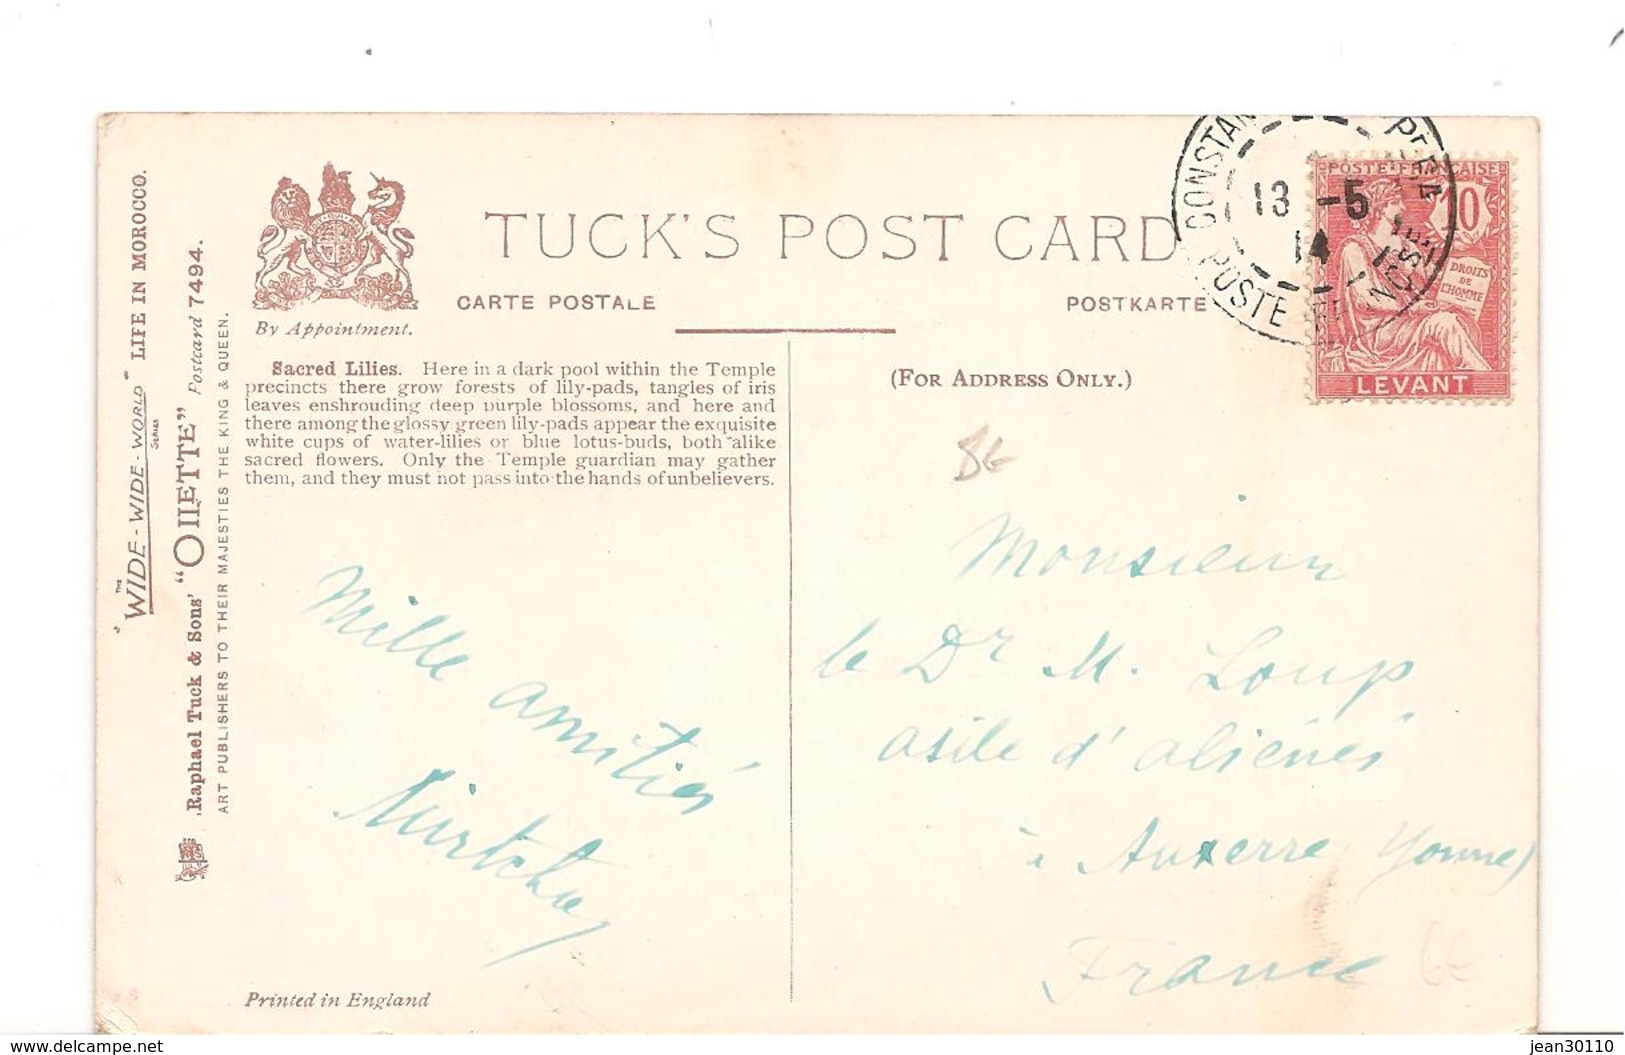 LIFE IN MOROCCO.
"THE "WIDE-WIDE-WORLD" SERIES
Raphael Tuck & Sons' "OILETTE" Postcard 7494.
ART PUBLISHERS TO THEIR MAJESTIES THE KING & QUEEN.
TUCK'S POST CARD
CARTE POSTALE
POSTKARTE
By Appointment.
Sacred Lilies. Here in a dark pool within the Temple
precincts there grow forests of lily-pads, tangles of iris
leaves enshrouding deep purple blossoms, and here and
there among the glossy green lily-pads appear the exquisite
white cups of water-lilies or blue lotus-buds, both alike
sacred flowers. Only the Temple guardian may gather
them, and they must not pass into the hands of unbelievers.
Mille amitiés
(FOR ADDRESS ONLY.)
CONSTAN PERA
13 -5
14
POSTE
POSTE FRANÇAISE
10
DROITS
DE
L'HOMME
LEVANT
Monsieur
le Dr M. Loup
asile d'aliénés
à Auxerre (Yonne)
France
6€
Printed in England
www.delcampe.net
jean30110